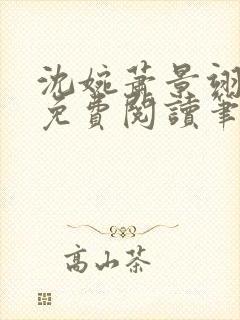 沈婉蕭景翊
免費閱讀筆
高山茶